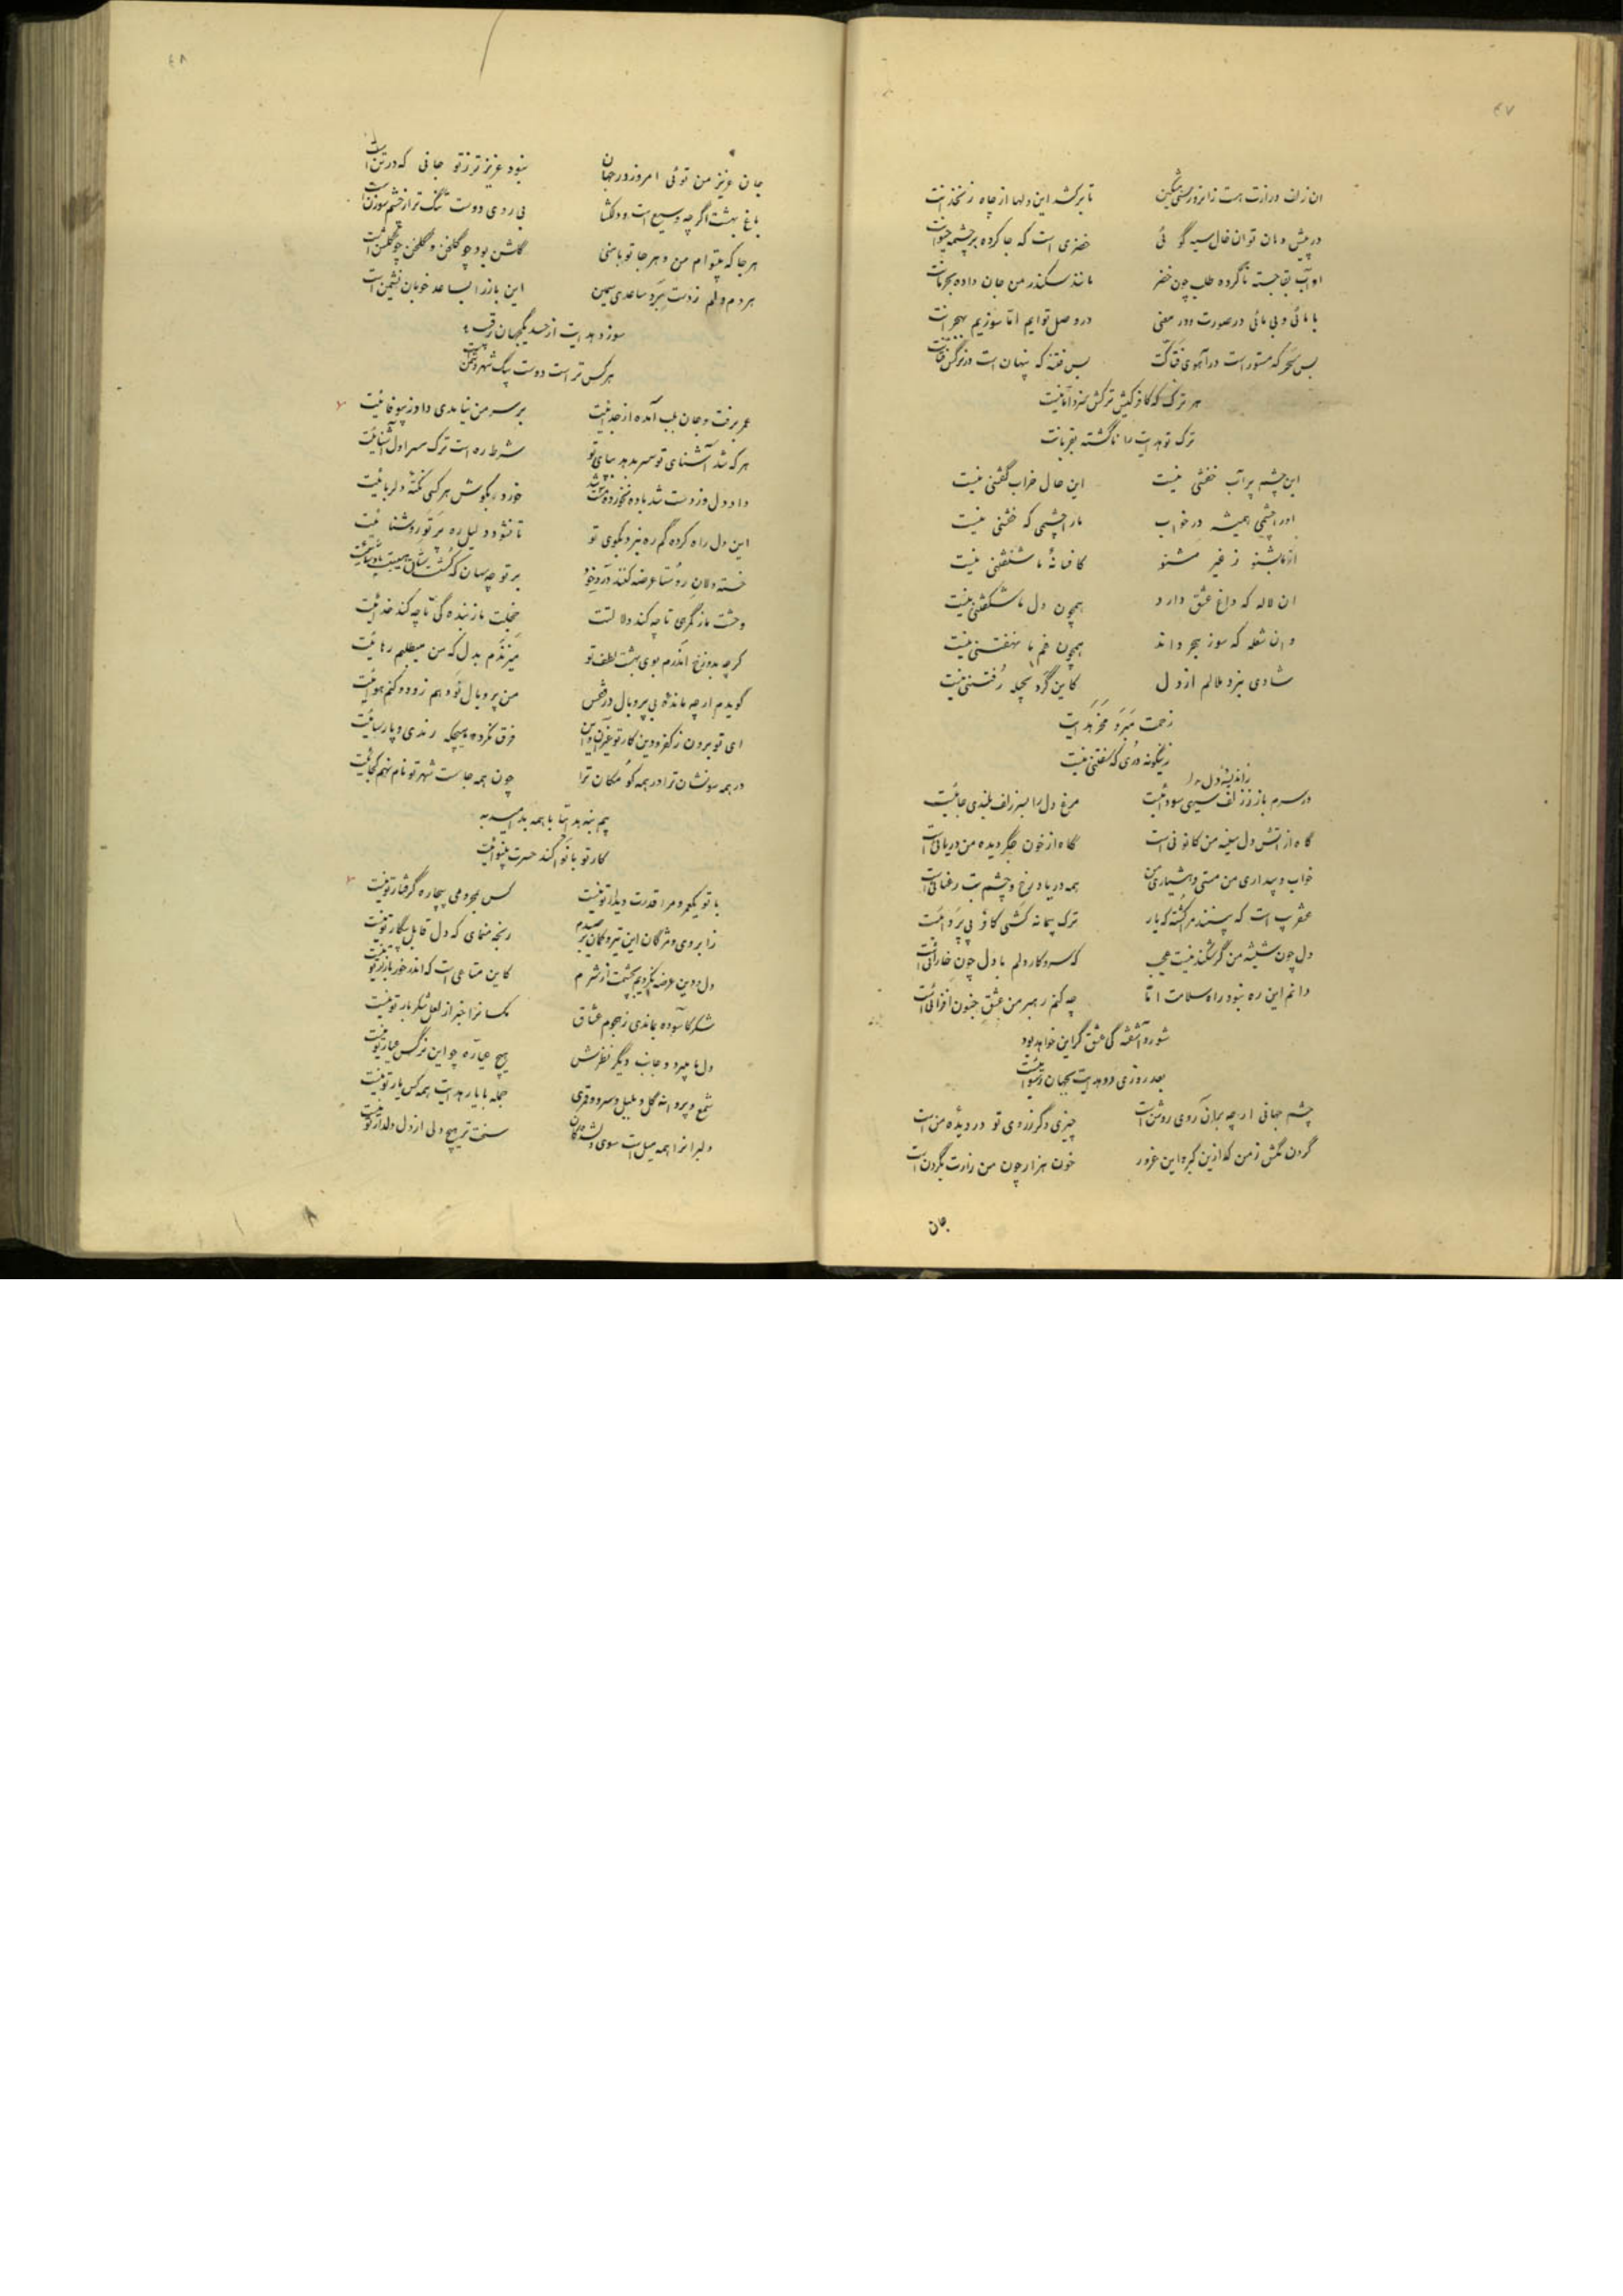 ۴۷
ان زلف درازت هست زانرو رسنی مشکین تا برکشد این دلها از چاه زنخدانت
در پیش دهان تو ان خال سیه گوئی خضری است که جا کرده بر چشمه حیوانت
او آب بقا جسته ناکرده طلب چون خضر مانند سکندر من جان داده بحرمانت
با مائی و بی مائی در صورت و در معنی در وصل توایم اما سوزیم بهجرانت
بس سحر که مستور است در آهوی فتاکت بس فتنه که پنهان است در نرگس فتانت
هر ترک که کافر کیش ترکش نبرد اما نیست
ترک تو هدایت را ناگشته بقربانت
این چشم پر آب خفتنی نیست این حال خراب گفتنی نیست
اندر چشمی همیشه در خواب ماز چشمی که خفتنی نیست
از ما بشنو ز غیر مشنو کافسانهٔ ما شنفتنی نیست
ان لاله که داغ عشق دارد همچون دل ما شکفتنی نیست
وان شعله که سوز هجر داند همچون غم ما نهفتنی نیست
شادی نبرد ملالم از دل کاین گرد بحیله رفتنی نیست
زحمت مبر و مخر هدایت
زینگونه دری که سفتنی نیست
در سرم باز ز زلف سیهی سودائیست مرغ دل را بسر زلف بلندی جائیست
گاه از آتش دل سینه من کانونی است گاه از خون جگر دیده من دریائی است
خواب و بیداری من مستی و هشیاری من همه در یاد رخ و چشم بت رعنائی است
دل چون شیشه من گر شکند نیست عجب که سر و کار دلم با دل چون خارائی است
دانم این ره نبود راه سلامت اما چه کنم رهبر من عشق جنون افزائی است
شور و آشفته گی عشق گر این خواهد بود
بعد روزی دو هدایت بجهان رسوائیست
چشم جهانی ار چه بدان روی روشن است چیزی دگر ز روی تو در دیده من است
گردن مکش ز من که ازین کبر و این غرور خون هزار چون من زارت بگردن است
جان
۴۸
جان عزیز من توئی امروز در جهان نبود عزیزتر ز تو جانی که در تن است
باغ بهشت اگر چه وسیع است و دلگشا بی روی دوست تنگ تر از چشم سوزن است
هر جا که بیتوام من و هر جا تو با منی گلشن بود چو گلخن و گلخن چو گلشن است
هر دم دلم ز دست برد ساعدی سیمین این باز را بساعد خوبان نشیمن است
سوزد هدایت از حسد یکجهان رقیب
هر کس تر است دوست بیک شهر دشمن است
عمر برفت و جان بلب آمده از جدائیت بر سر من نیامدی داد ز بیوفائیت
هر که شد آشنای تو سر بدهد بپای تو شرط ره است ترک سر اول آشنائیت
این دل راه کرده گم ره نبرد بکوی تو تا نشود دلیل ره پرتو روشنائیت
وحشت ما ز گمرهی تا چه کند دلالتت خجلت ما ز بنده گی تا چه کند خدائیت
گر چه بدوزخ اندرم بوی بهشت لطف تو میرندم بدل که من میطلبم رهائیت
گویدم ار چه ماندهٔ بی پر و بال در قفس من پر و بال تو دهم زود کنم هوائیت
ای تو برون ز کفر و دین کار تو غیر آن و این فرق نکرده هیچکه رندی و پارسائیت
در همه سو نشان ترا در همه کو مکان ترا چون همه جاست شهر تو نام نهم کجائیت
بیم بنه هدایتا با همه بد امید به
کار تو با نوا کند حسرت بینوائیت
با تو یکجا و مرا قدرت دیدار تو نیست کس بمحرومی بیچاره گرفتار تو نیست
ز ابروی و مژگان این تیر و کمان بر صیدم رنجه منمای که دل قابل پیکار تو نیست
دل و دین عرضه نکردیم بچشمت از شرم کاین متاعی است که اندر خور بازار تو نیست
شکر کاسوده بماندی ز هجوم عشاق مگسانرا خبر از لعل شکر بار تو نیست
دل ما میبرد و جانب دیگر نظرش هیچ عیاره چو این نرگس عیار تو نیست
شمع و پروانه گل و بلبل و سرو و قمری جمله با یار هدایت همه کس یار تو نیست
دلبرانرا همه میل است سوی دلشدگان سخت تر هیچ دلی از دل دلدار تو نیست